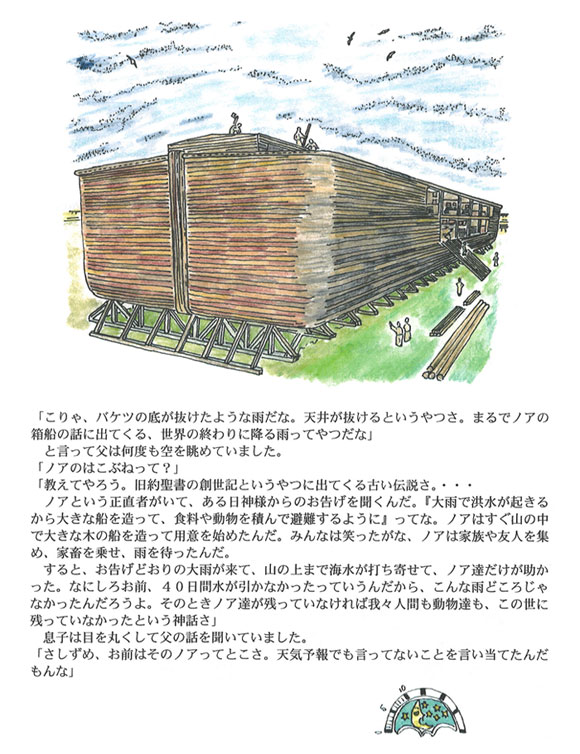 「こりゃ、バケツの底が抜けたような雨だな。天井が抜けるというやつさ。まるでノアの
箱船の話に出てくる、世界の終わりに降る雨ってやつだな」
と言って父は何度も空を眺めていました。
「ノアのはこぶねって？」
「教えてやろう。旧約聖書の創世記というやつに出てくる古い伝説さ。・・・
ノアという正直者がいて、ある日神様からのお告げを聞くんだ。『大雨で洪水が起きる
から大きな船を造って、食料や動物を積んで避難するように』ってな。ノアはすぐ山の中
で大きな木の船を造って用意を始めたんだ。みんなは笑ったがな、ノアは家族や友人を集
め、家畜を乗せ、雨を待ったんだ。
すると、お告げどおりの大雨が来て、山の上まで海水が打ち寄せて、ノア達だけが助か
った。なにしろお前、４０日間水が引かなかったっていうんだから、こんな雨どころじゃ
なかったんだろうよ。そのときノア達が残っていなければ我々人間も動物達も、この世に
残っていなかったという神話さ」
息子は目を丸くして父の話を聞いていました。
「さしずめ、お前はそのノアってとこさ。天気予報でも言ってないことを言い当てたんだ
もんな」
0 5 10